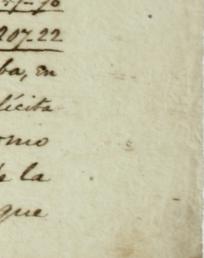 207-22
ba, en
licita
omo
de la
que